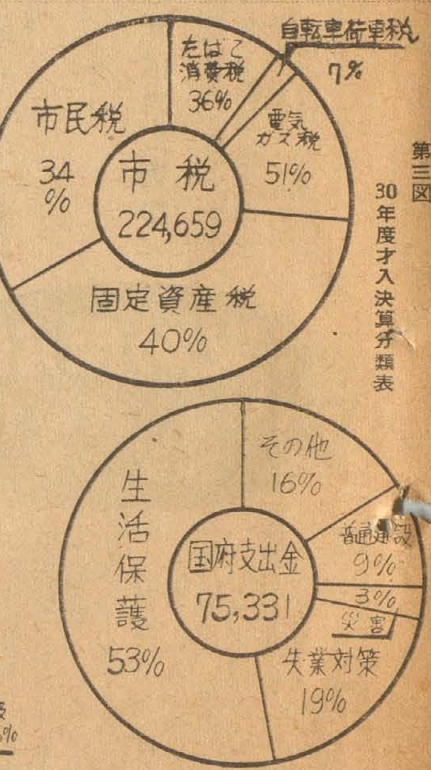 第三図
30年度才入決算分類表
自転車荷車税
7%
たばこ
消費税
36%
電気
ガス税
51%
市民税
34
%
市税
224,659
固定資産税
40%
その他
16%
普通建設
9%
3%
災害
失業対策
19%
生活保護
53%
国府支出金
75,331
%